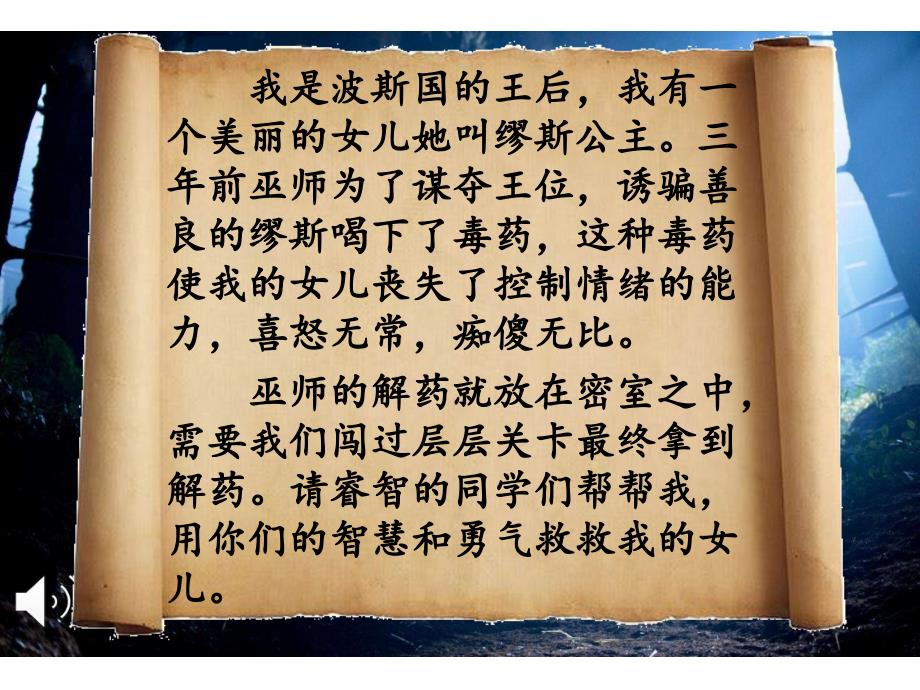 我是波斯国的王后，我有一
个美丽的女儿她叫缪斯公主。三
年前巫师为了谋夺王位，诱骗善
良的缪斯喝下了毒药，这种毒药
使我的女儿丧失了控制情绪的能
力，喜怒无常，痴傻无比。
巫师的解药就放在密室之中，
需要我们闯过层层关卡最终拿到
解药。请睿智的同学们帮帮我，
用你们的智慧和勇气救救我的女
儿。